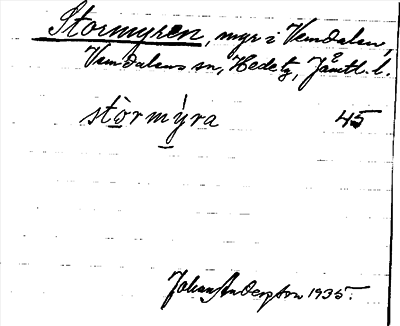 Stormyren, myr i Vemdalen,
Vemdalens sn, Hede tg, Jämtl. l.
stòrmýra 45
Johan Anderzon 1935.